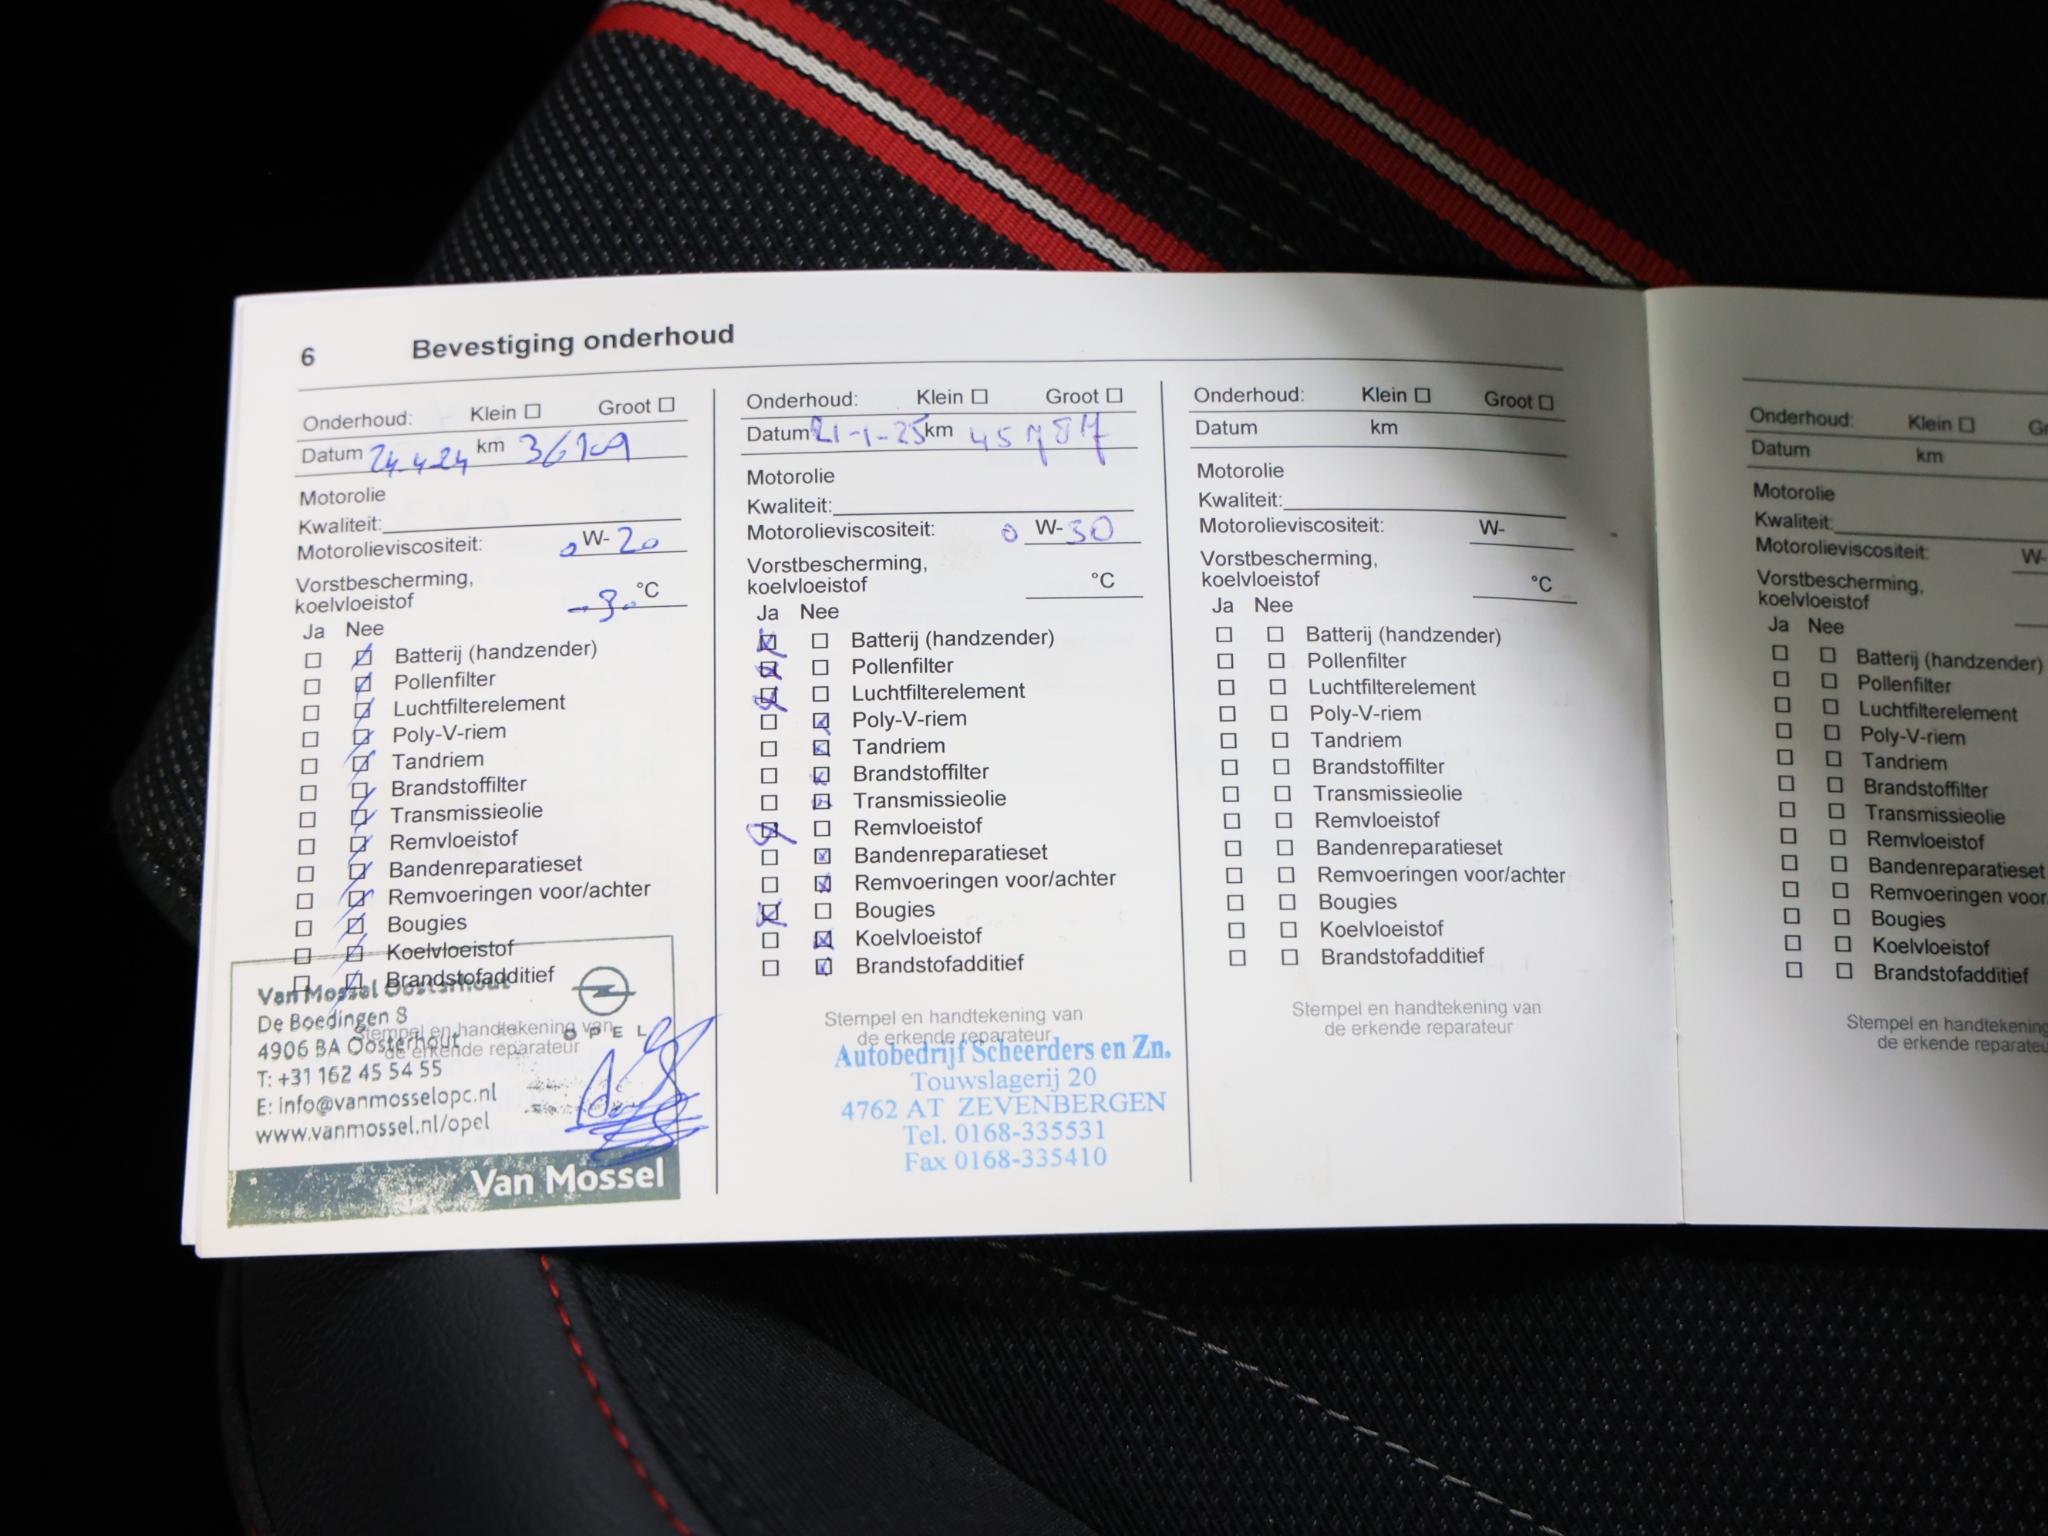 6 Bevestiging onderhoud
Onderhoud: Klein Groot
Datum 24-4-24 km 36109
Motorolie
Kwaliteit:
Motorolieviscositeit: 0 W- 20
Vorstbescherming,
koelvloeistof °C
Ja Nee
Batterij (handzender)
Pollenfilter
Luchtfilterelement
Poly-V-riem
Tandriem
Brandstoffilter
Transmissieolie
Remvloeistof
Bandenreparatieset
Remvoeringen voor/achter
Bougies
Koelvloeistof
Brandstofadditief
Stempel en handtekening van
de erkende reparateur
Van Mossel Oosterhout
De Boedingen 8
4906 BA Oosterhout
T: +31 162 45 54 55
E: info@vanmosselopc.nl
www.vanmossel.nl/opel
OPEL
Van Mossel
Onderhoud: Klein Groot
Datum 21-1-25 km
Motorolie
Kwaliteit:
Motorolieviscositeit: 0 W- 30
Vorstbescherming,
koelvloeistof °C
Ja Nee
Batterij (handzender)
Pollenfilter
Luchtfilterelement
Poly-V-riem
Tandriem
Brandstoffilter
Transmissieolie
Remvloeistof
Bandenreparatieset
Remvoeringen voor/achter
Bougies
Koelvloeistof
Brandstofadditief
Stempel en handtekening van
de erkende reparateur
Autobedrijf Scheerders en Zn.
Touwslagerij 20
4762 AT ZEVENBERGEN
Tel. 0168-335531
Fax 0168-335410
Onderhoud: Klein Groot
Datum km
Motorolie
Kwaliteit:
Motorolieviscositeit: W-
Vorstbescherming,
koelvloeistof °C
Ja Nee
Batterij (handzender)
Pollenfilter
Luchtfilterelement
Poly-V-riem
Tandriem
Brandstoffilter
Transmissieolie
Remvloeistof
Bandenreparatieset
Remvoeringen voor/achter
Bougies
Koelvloeistof
Brandstofadditief
Stempel en handtekening van
de erkende reparateur
Onderhoud: Klein
Datum km
Motorolie
Kwaliteit:
Motorolieviscositeit: W-
Vorstbescherming,
koelvloeistof
Ja Nee
Batterij (handzender)
Pollenfilter
Luchtfilterelement
Poly-V-riem
Tandriem
Brandstoffilter
Transmissieolie
Remvloeistof
Bandenreparatieset
Remvoeringen
Bougies
Koelvloeistof
Brandstofadditief
Stempel en handtekening
de erkende